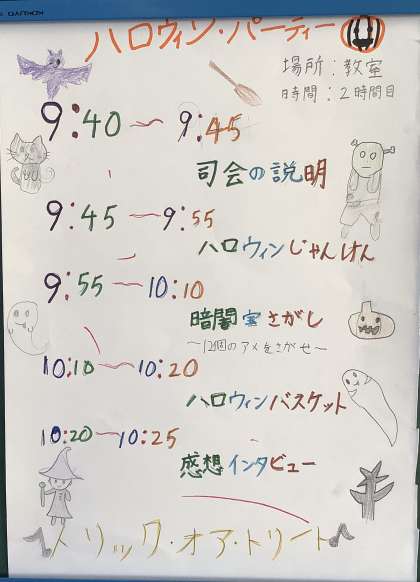 ハロウィン・パーティー
場所:教室
時間:2時間目
9:40〜9:45
司会の説明
9:45〜9:55
ハロウィンじゃんけん
9:55〜10:10
暗闇宝さがし
〜12個のアメをさがせ〜
10:10〜10:20
ハロウィンバスケット
10:20〜10:25
感想インタビュー
トリック・オア・トリート